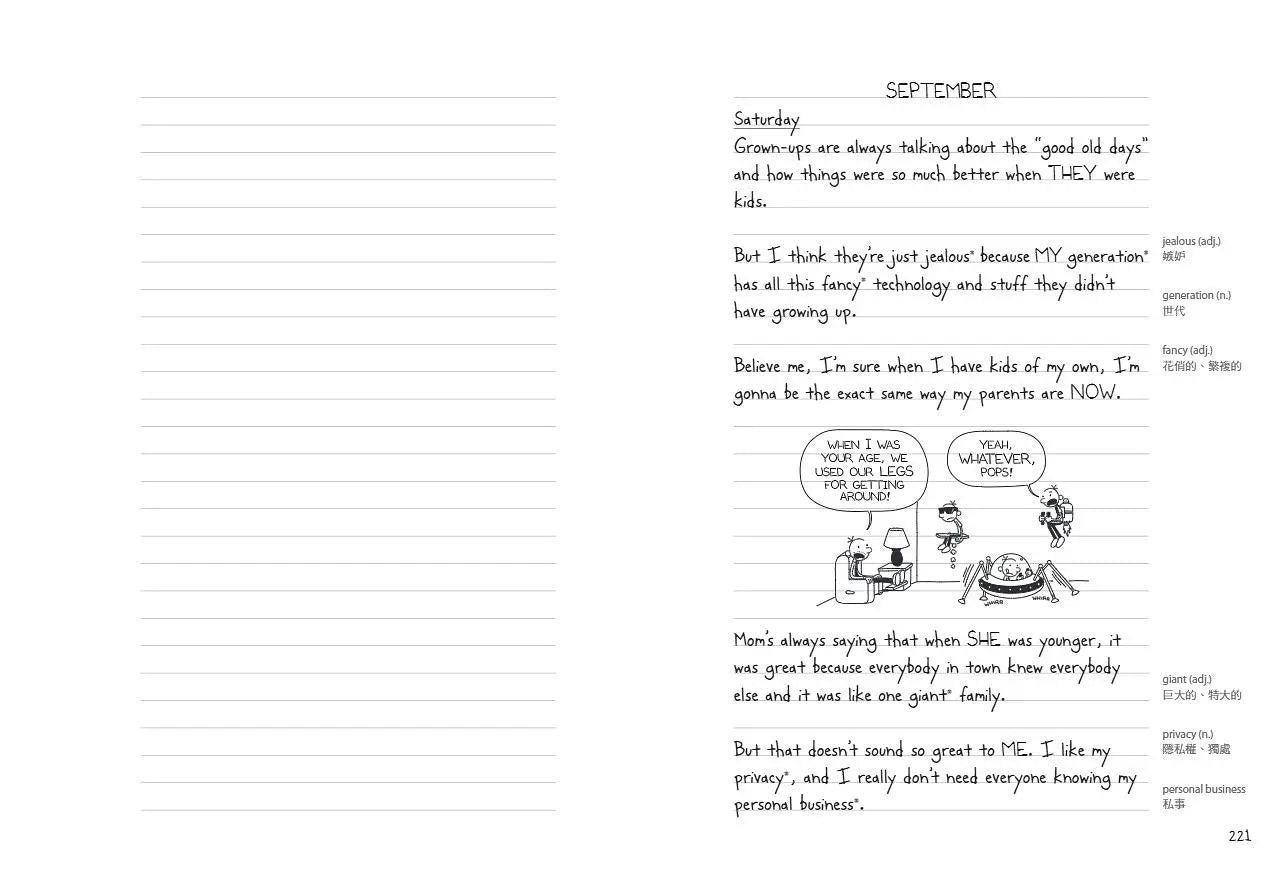 SEPTEMBER
Saturday
Grown-ups are always talking about the “good old days”
and how things were so much better when THEY were
kids.
But I think they’re just jealous* because MY generation*
has all this fancy* technology and stuff they didn’t
have growing up.
jealous (adj.)
嫉妒
generation (n.)
世代
Believe me, I’m sure when I have kids of my own, I’m
gonna be the exact same way my parents are NOW.
fancy (adj.)
花俏的、繁複的
WHEN I WAS
YOUR AGE, WE
USED OUR LEGS
FOR GETTING
AROUND!
YEAH,
WHATEVER,
POPS!
WHIRR
WHIRR
Mom’s always saying that when SHE was younger, it
was great because everybody in town knew everybody
else and it was like one giant* family.
giant (adj.)
巨大的、特大的
But that doesn’t sound so great to ME. I like my
privacy*, and I really don’t need everyone knowing my
personal business*.
privacy (n.)
隱私權、獨處
personal business
私事
221